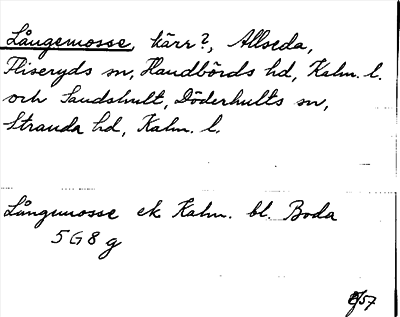 Långemosse, kärr?, Allseda,
Fliseryds sn, Handbörds hd, Kalm. l.
och Sandshult, Döderhults sn,
Stranda hd, Kalm. l.
Långemosse ek Kalm. bl. Boda
5 G 8 g